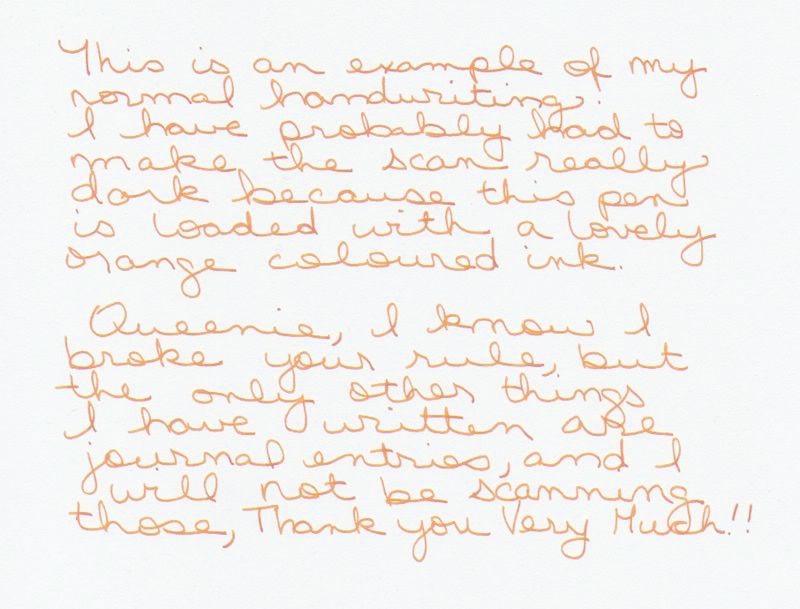 This is an example of my
normal handwriting.
I have probably had to
make the scan really
dark because this pen
is loaded with a lovely
orange coloured ink.
Queenie, I know I
broke your rule, but
the only other things
I have written are
journal entries, and I
will not be scanning
those, Thank you Very Much!!